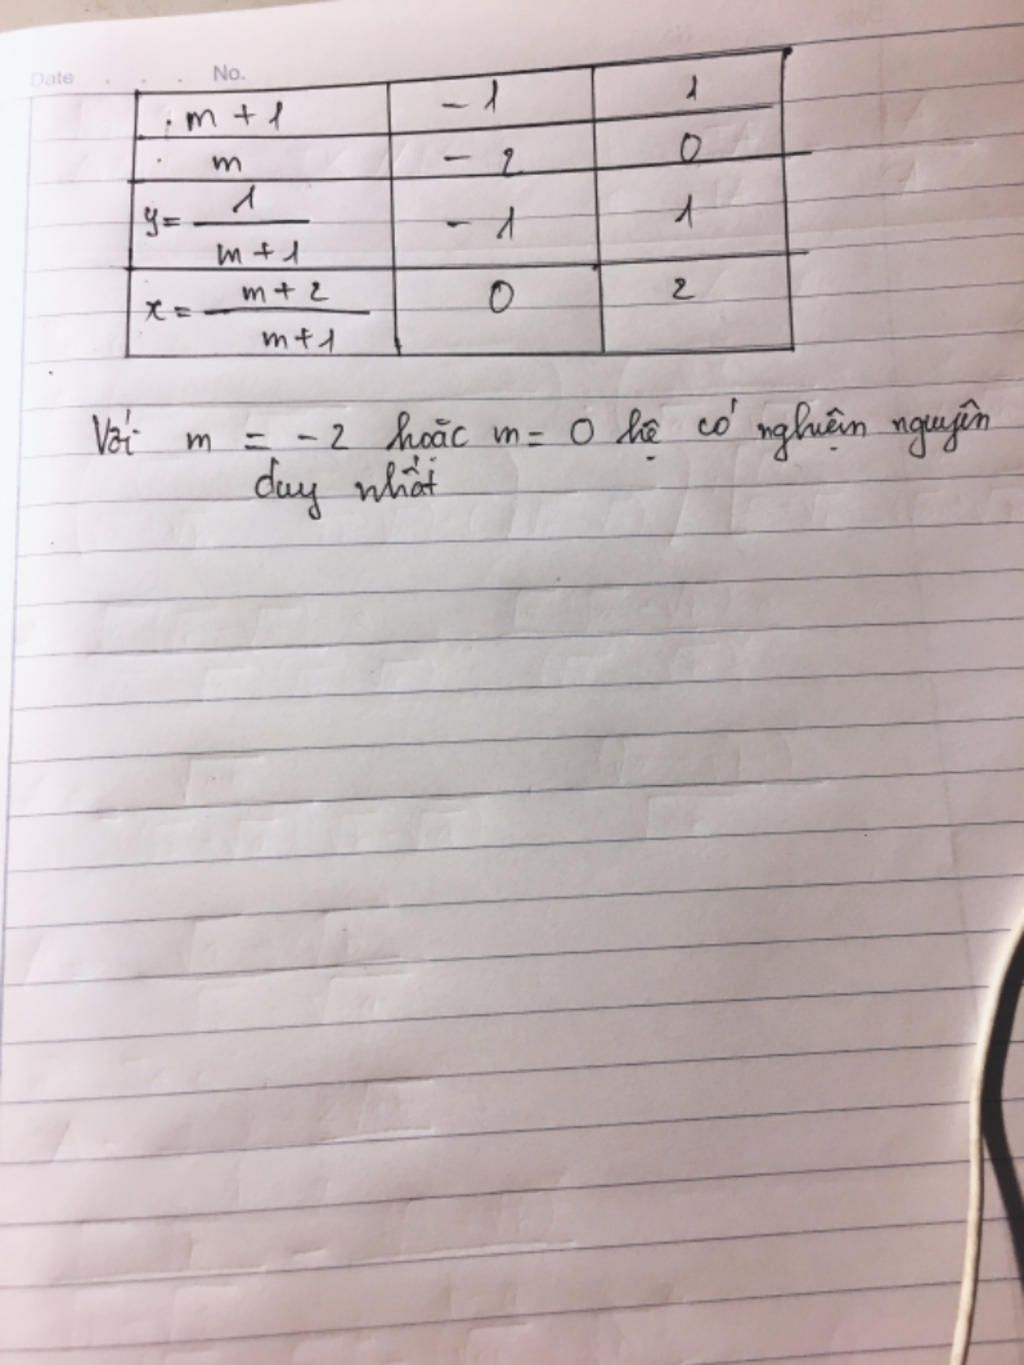 Date . . . No.
m + 1 -1 1
m -2 0
y = 1/(m + 1) -1 1
x = (m + 2)/(m + 1) 0 2
Với m = -2 hoặc m = 0 hệ có nghiệm nguyên
duy nhất